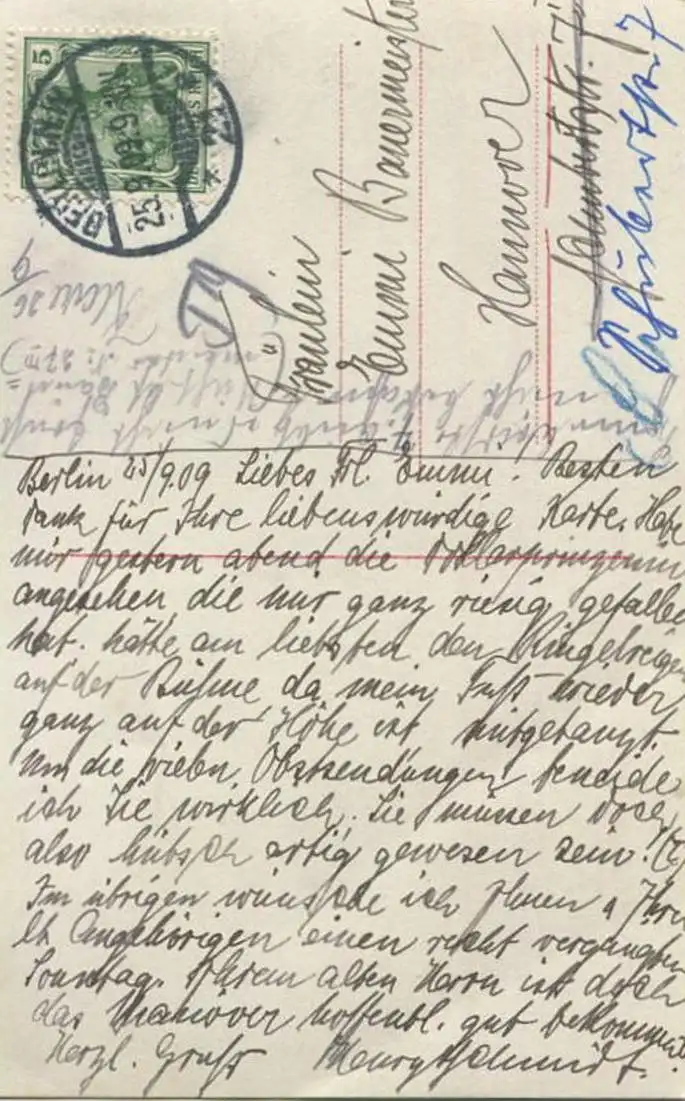 5
BERLIN N.W.
25.9.09
Fräulein
Emmi Bauermeister
Hannover
Schubertstr. 7
Berlin 25/9.09 Liebes Frl. Emmi! Besten
Dank für Ihre liebenswürdige Karte. Habe
mir gestern abend die Dollarprinzessin
angesehen, die mir ganz riesig gefallen
hat. hätte am liebsten den Ringelreigen
auf der Bühne da mein Fuß wieder
ganz auf der Höhe ist mitgetanzt.
Um die vielen Obstsendungen beneide
ich Sie wirklich. Sie müssen doch
also hübsch artig gewesen sein!
Im übrigen wünsche ich Ihnen u Ihren
lb Angehörigen einen recht vergnügten
Sonntag. Ihrem alten Herrn ist doch
das Manöver hoffentl. gut bekommen.
Herzl. Gruß Henry Schmidt.